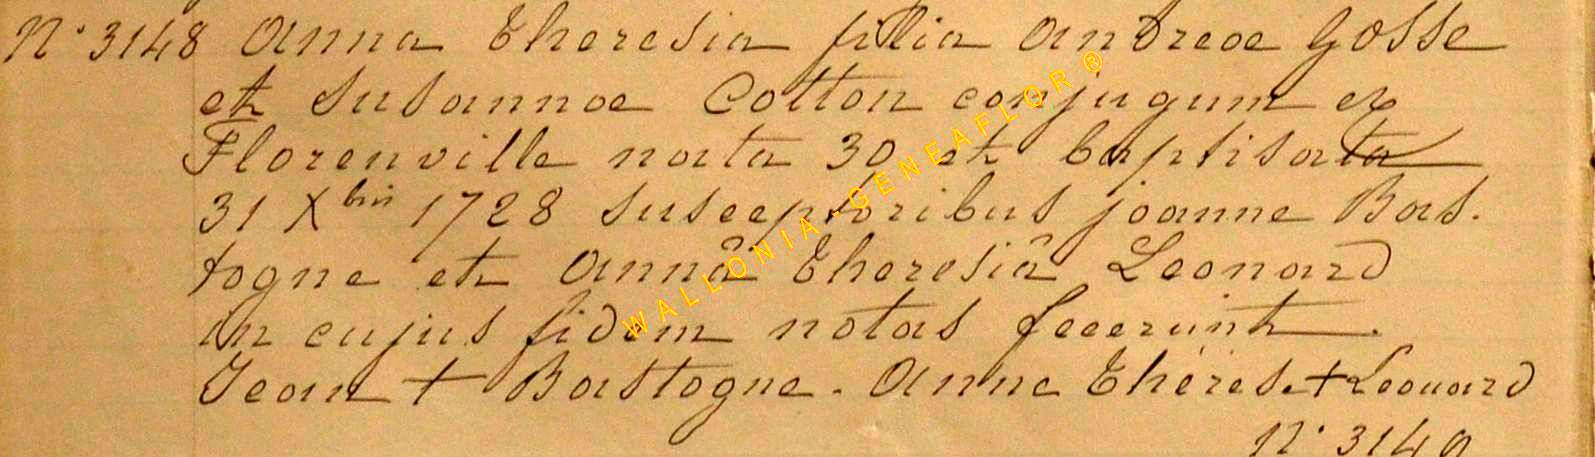 N° 3148 Anna Theresia filia Andreae Gosse
et Susannae Cotton conjugum ex
Florenville nata 30 et baptisata
31 Xbris 1728 susceptoribus joanne Bas-
togne et Annâ Theresiâ Leonard
in cujus fidem notas fecerunt.
Jean + Bastogne. Anne Thérèse + Leonard
N° 3149
WALLONIA-GENEAFLOR®